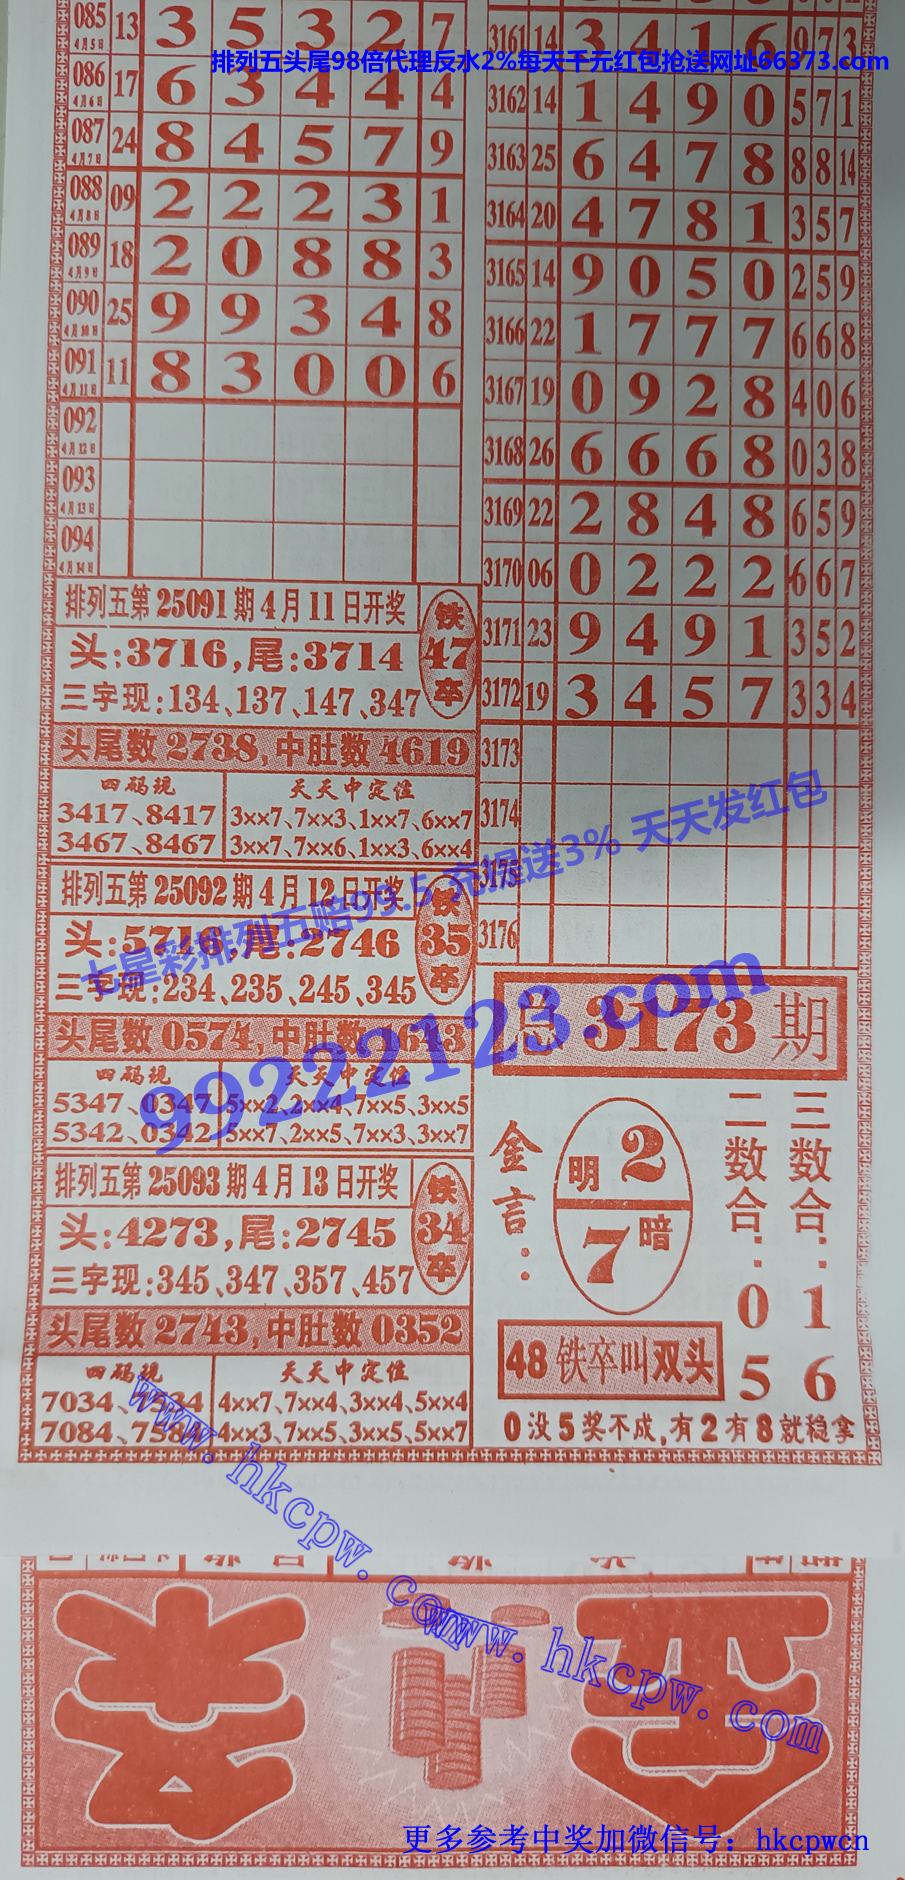 085 4月5日 13 3 5 3 2 7
086 4月6日 17 6 3 4 4 4
087 4月7日 24 8 4 5 7 9
088 4月8日 09 2 2 2 3 1
089 4月9日 18 2 0 8 8 3
090 4月10日 25 9 9 3 4 8
091 4月11日 11 8 3 0 0 6
092 4月12日
093 4月13日
094 4月14日
排列五第25091期4月11日开奖
头:3716,尾:3714
三字现:134、137、147、347
铁
47
卒
头尾数2738,中肚数4619
四码现
3417、8417
3467、8467
天天中定位
3××7、7××3、1××7、6××7
3××7、7××6、1××3、6××4
排列五第25092期4月12日开奖
头:5716,尾:2746
三字现:234、235、245、345
铁
35
卒
头尾数0574,中肚数1643
四码现
5347、0347
5342、0342
天天中定位
5××2、2××4、7××5、3××5
5××7、2××5、7××3、3××7
排列五第25093期4月13日开奖
头:4273,尾:2745
三字现:345、347、357、457
铁
34
卒
头尾数2743,中肚数0352
四码现
7034、7534
7084、7584
天天中定位
4××7、7××4、3××4、5××4
4××3、7××5、3××5、5××7
3161 14 3 4 1 6 9 7 3
3162 14 1 4 9 0 5 7 1
3163 25 6 4 7 8 8 8 14
3164 20 4 7 8 1 3 5 7
3165 14 9 0 5 0 2 5 9
3166 22 1 7 7 7 6 6 8
3167 19 0 9 2 8 4 0 6
3168 26 6 6 6 8 0 3 8
3169 22 2 8 4 8 6 5 9
3170 06 0 2 2 2 6 6 7
3171 23 9 4 9 1 3 5 2
3172 19 3 4 5 7 3 3 4
3173
3174
3175
3176
总3173期
金言:
明2
7暗
二数合:05
三数合:16
48铁卒叫双头
0没5奖不成,有2有8就稳拿
排列五头尾98倍代理反水2%每天千元红包抢送网址66373.com
七星彩排列五赔99.5 充提送3% 天天发红包
99222123.com
www.hkcpw.com
www.hkcpw.com
更多参考中奖加微信号：hkcpwcn